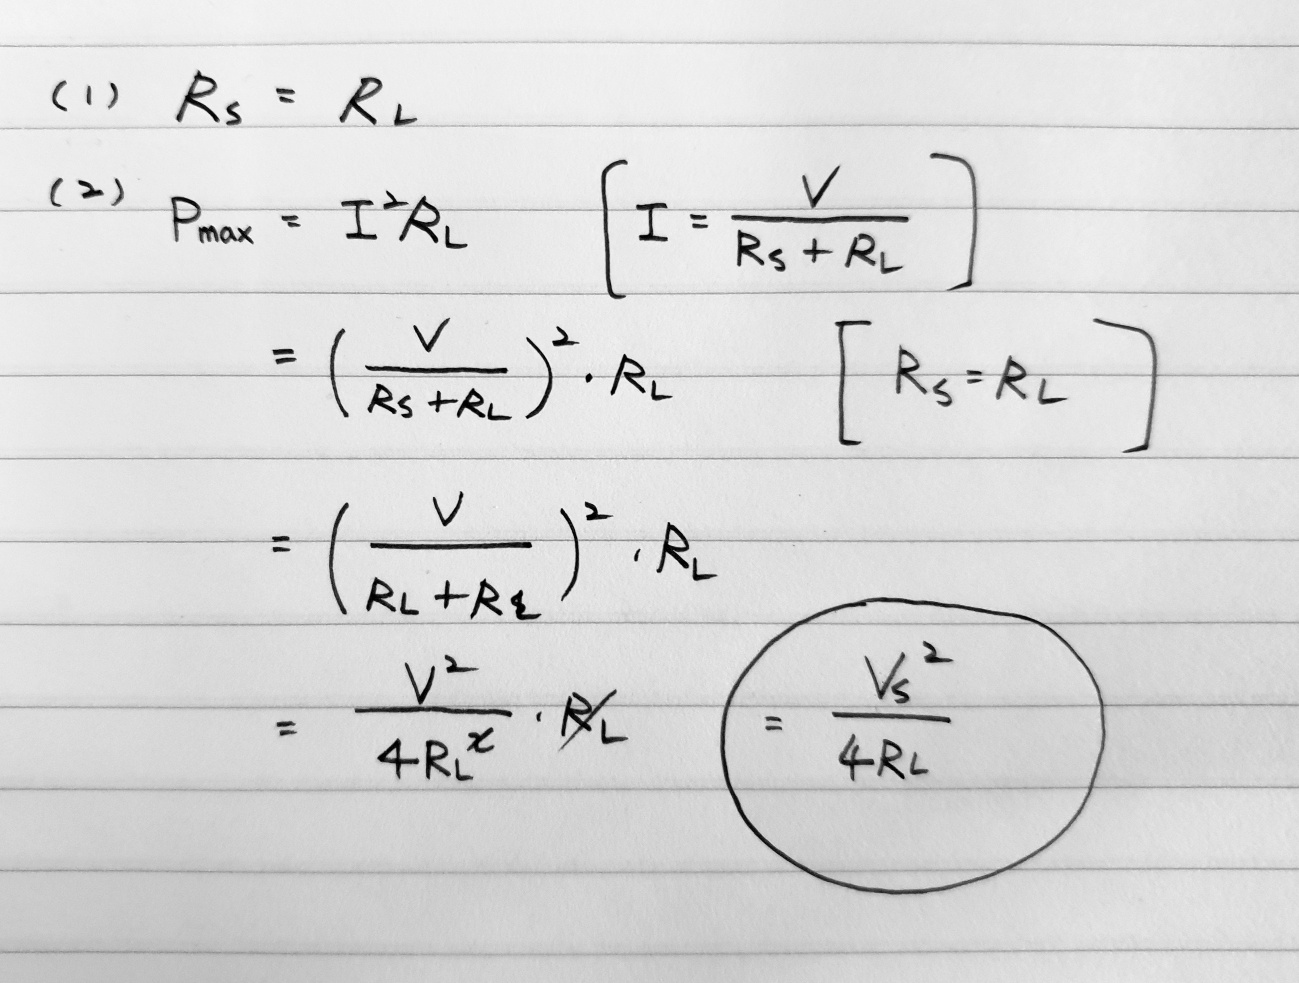 (1) Rs = RL
(2) Pmax = I²RL [I = V/(Rs + RL)]
= (V/(Rs + RL))² · RL [Rs = RL]
= (V/(RL + RL))² · RL
= V²/(4RL²) · RL = Vs²/(4RL)